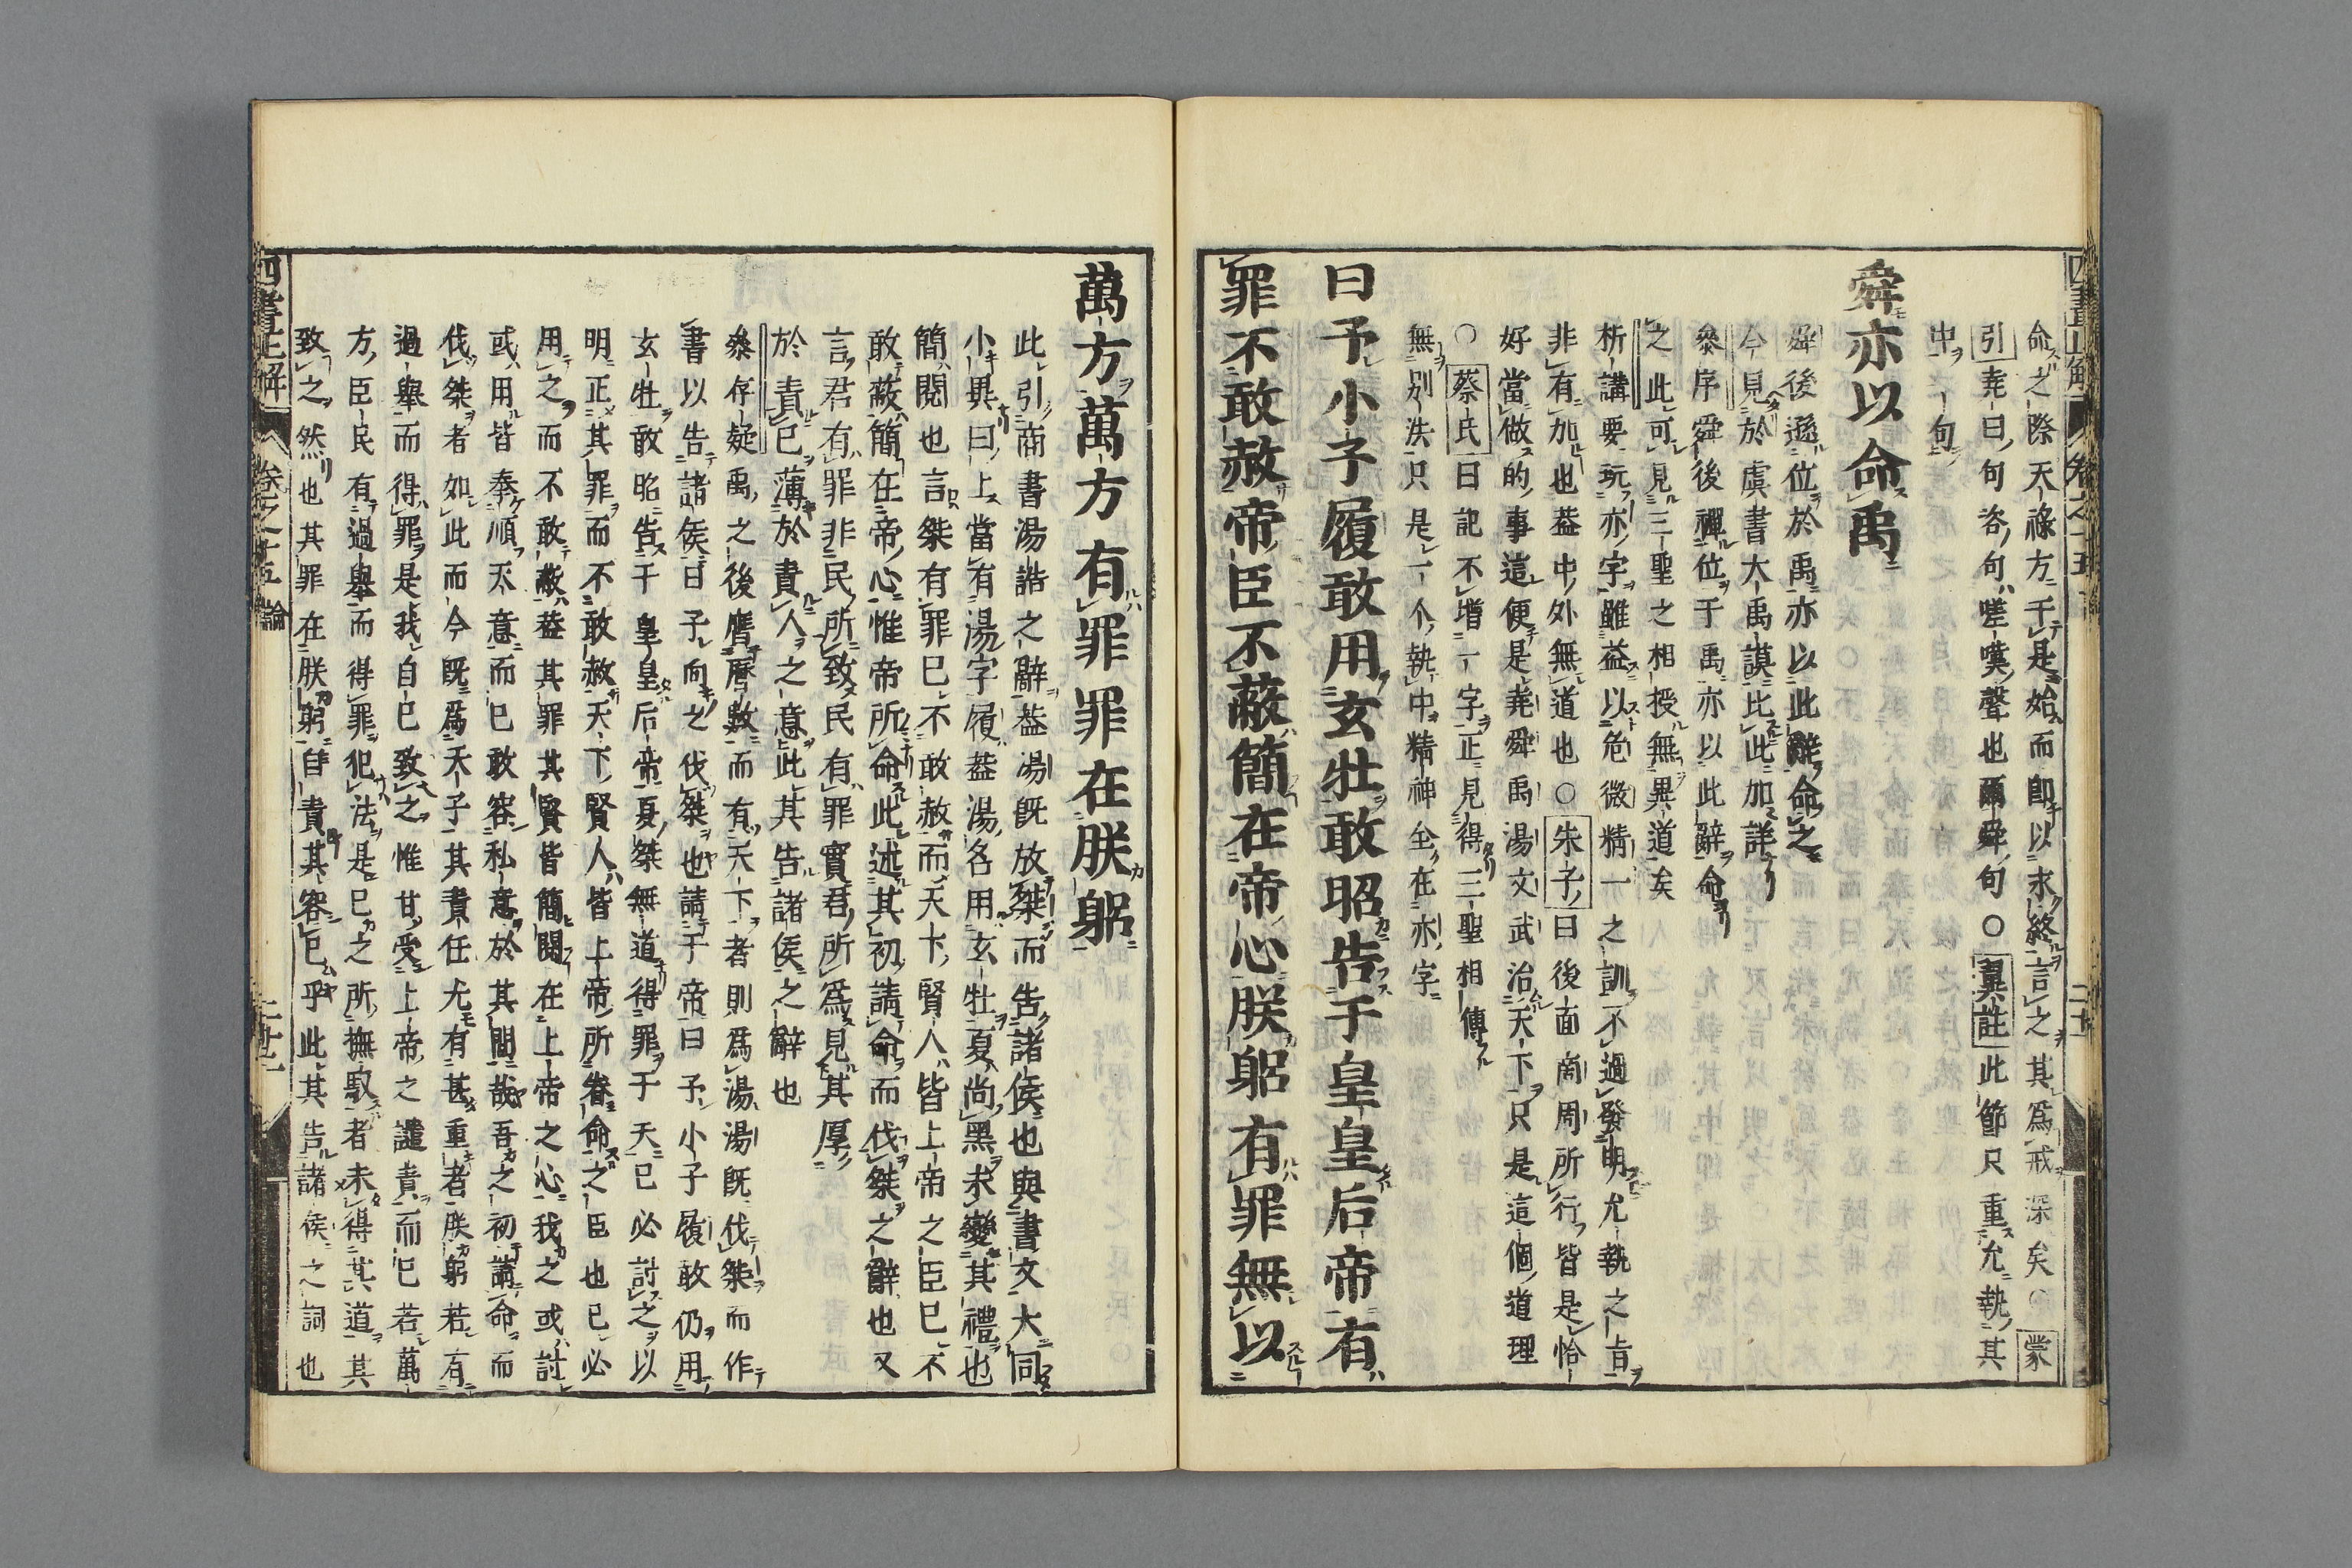 命之際天祿方于是始而即以永終言之其爲戒深矣○蒙
引堯曰句咨句嗟嘆聲也爾舜句○翼註此節只重允執其
中一句
舜亦以命禹
舜後遜位於禹亦以此辭命之
今見於虞書大禹謨比此加詳
叅序舜後禪位于禹亦以此辭命
之此可見三聖之相授無異道矣
析講要玩亦字雖益以危微精一之訓不過發明允執之旨
非有加也葢中外無道也○朱子曰後面商周所行皆是恰
好當做的事這便是堯舜禹湯文武治天下只是這個道理
○蔡氏曰記不增一字正見得三聖相傳
無別法只是一个執中精神全在亦字
曰予小子履敢用玄牡敢昭告于皇皇后帝有
罪不敢赦帝臣不蔽簡在帝心朕躬有罪無以
四書正解 卷之十五 論
萬方萬方有罪罪在朕躬
此引商書湯誥之辭葢湯既放桀而告諸侯也與書文大同
小異曰上當有湯字履葢湯名用玄牡夏尚黑未變其禮也
簡閱也言桀有罪已不敢赦而天下賢人皆上帝之臣已不
敢蔽簡在帝心惟帝所命此述其初請命而伐桀之辭也又
言君有罪非民所致民有罪實君所爲見其厚
於責已薄於責人之意此其告諸侯之辭也
叅存疑禹之後膺曆數而有天下者則爲湯湯既伐桀而作
書以告諸侯曰予向之伐桀也請于帝曰予小子履敢仍用
玄牡敢昭告于皇皇后帝夏桀無道得罪于天已必討之以
明正其罪而不敢赦天下賢人皆上帝所眷命之臣也已必
用之而不敢蔽葢其罪其賢皆簡閱在上帝之心我之或討
或用皆奉順天意而已敢容私意於其間哉吾之初請命而
伐桀者如此而今既爲天子其責任尤有甚重者朕躬若有
過舉而得罪是我自已致之惟甘受上帝之譴責而已若萬
方臣民有過舉而得罪犯法是已之所撫馭者未得其道其
致之然也其罪在朕躬自責其容已乎此其告諸侯之詞也
四書正解 卷之十五 論